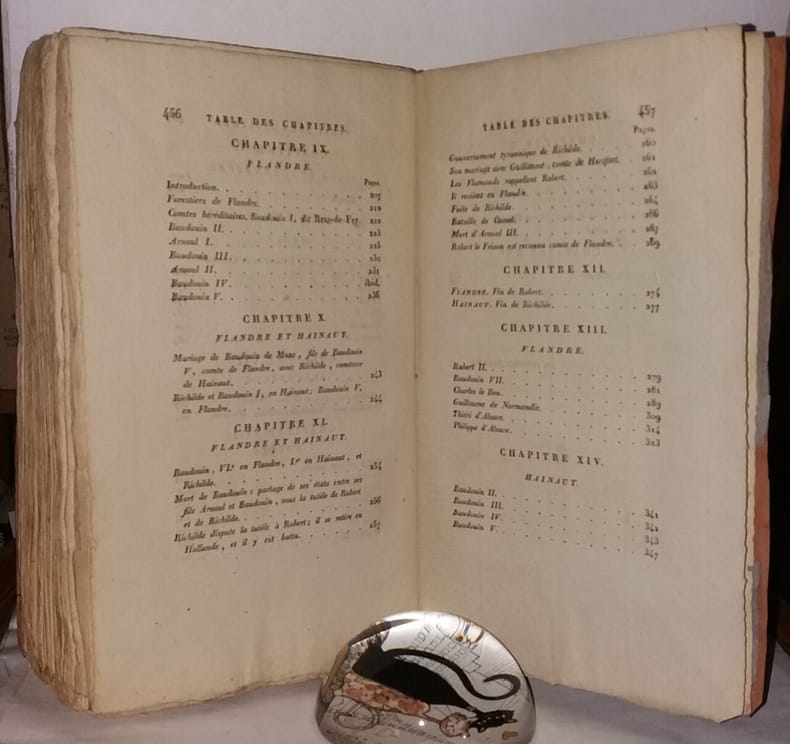 456
TABLE DES CHAPITRES.
CHAPITRE IX.
FLANDRE.
Pages.
Introduction. 207
Forestiers de Flandre. 210
Comtes héréditaires. Baudouin I, dit Bras-de-Fer. 222
Baudouin II. 223
Arnoul I. 225
Baudouin III. 230
Arnoul II. 231
Baudouin IV. ibid.
Baudouin V. 236
CHAPITRE X.
FLANDRE ET HAINAUT.
Mariage de Baudouin de Mons, fils de Baudouin
V, comte de Flandre, avec Richilde, comtesse
de Hainaut. 243
Richilde et Baudouin I, en Hainaut; Baudouin V,
en Flandre. 244
CHAPITRE XI.
FLANDRE ET HAINAUT.
Baudouin, VIe en Flandre, Ier en Hainaut, et
Richilde. 254
Mort de Baudouin: partage de ses états entre ses
fils Arnoul et Baudouin, sous la tutèle de Robert
et de Richilde. 256
Richilde dispute la tutèle à Robert; il se retire en
Hollande, et il y est battu. 257
TABLE DES CHAPITRES.
457
Pages.
Gouvernement tyrannique de Richilde. 260
Son mariage avec Guillaume, comte de Hereford. 261
Les Flamands rappellent Robert. 262
Il revient en Flandre. 263
Fuite de Richilde. 264
Bataille de Cassel. 266
Mort d'Arnoul III. 267
Robert le Frison est reconnu comte de Flandre. 269
CHAPITRE XII.
FLANDRE. Fin de Robert. 274
HAINAUT. Fin de Richilde. 277
CHAPITRE XIII.
FLANDRE.
Robert II. 279
Baudouin VII. 281
Charles le Bon. 289
Guillaume de Normandie. 309
Thiéri d'Alsace. 314
Philippe d'Alsace. 323
CHAPITRE XIV.
HAINAUT.
Baudouin II. 341
Baudouin III. 342
Baudouin IV. 343
Baudouin V. 347